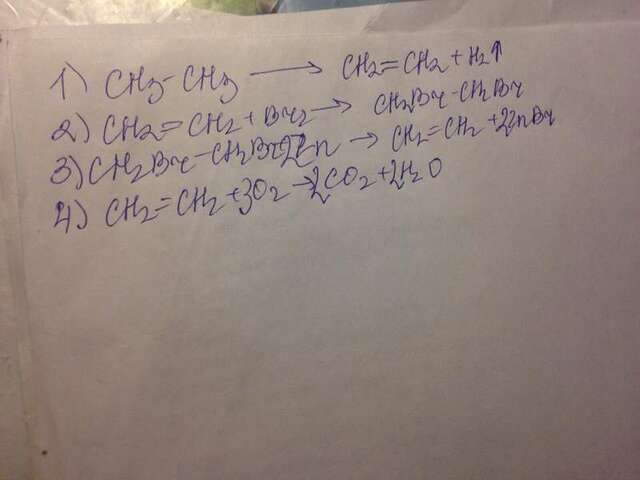 1) CH3-CH3 ⟶ CH2=CH2+H2↑
2) CH2=CH2+Br2 → CH2Br-CH2Br
3) CH2Br-CH2Br+2Zn → CH2=CH2+2ZnBr
4) CH2=CH2+3O2→2CO2+2H2O